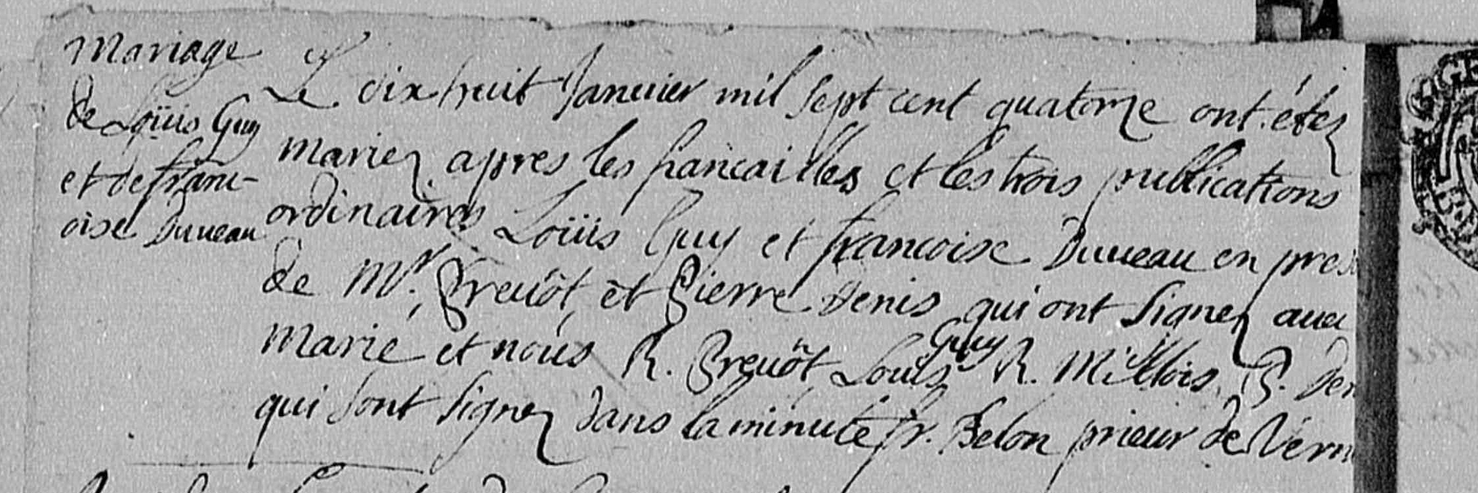 Mariage
de Loüis Guy
et de fran-
oise Duueau
Le dix huit Januier mil sept cent quatorze ont étéz
mariez apres les fiancailles et les trois publications
ordinaires Loüis Guy et francoise Duueau en pres
de Mr. Preuôt, et Pierre Denis qui ont signez auec
Marié et nous R. Preuôt, Louis Guy R. Millois, P. Den
qui sont signez dans la minute fr. Belon prieur de Vern